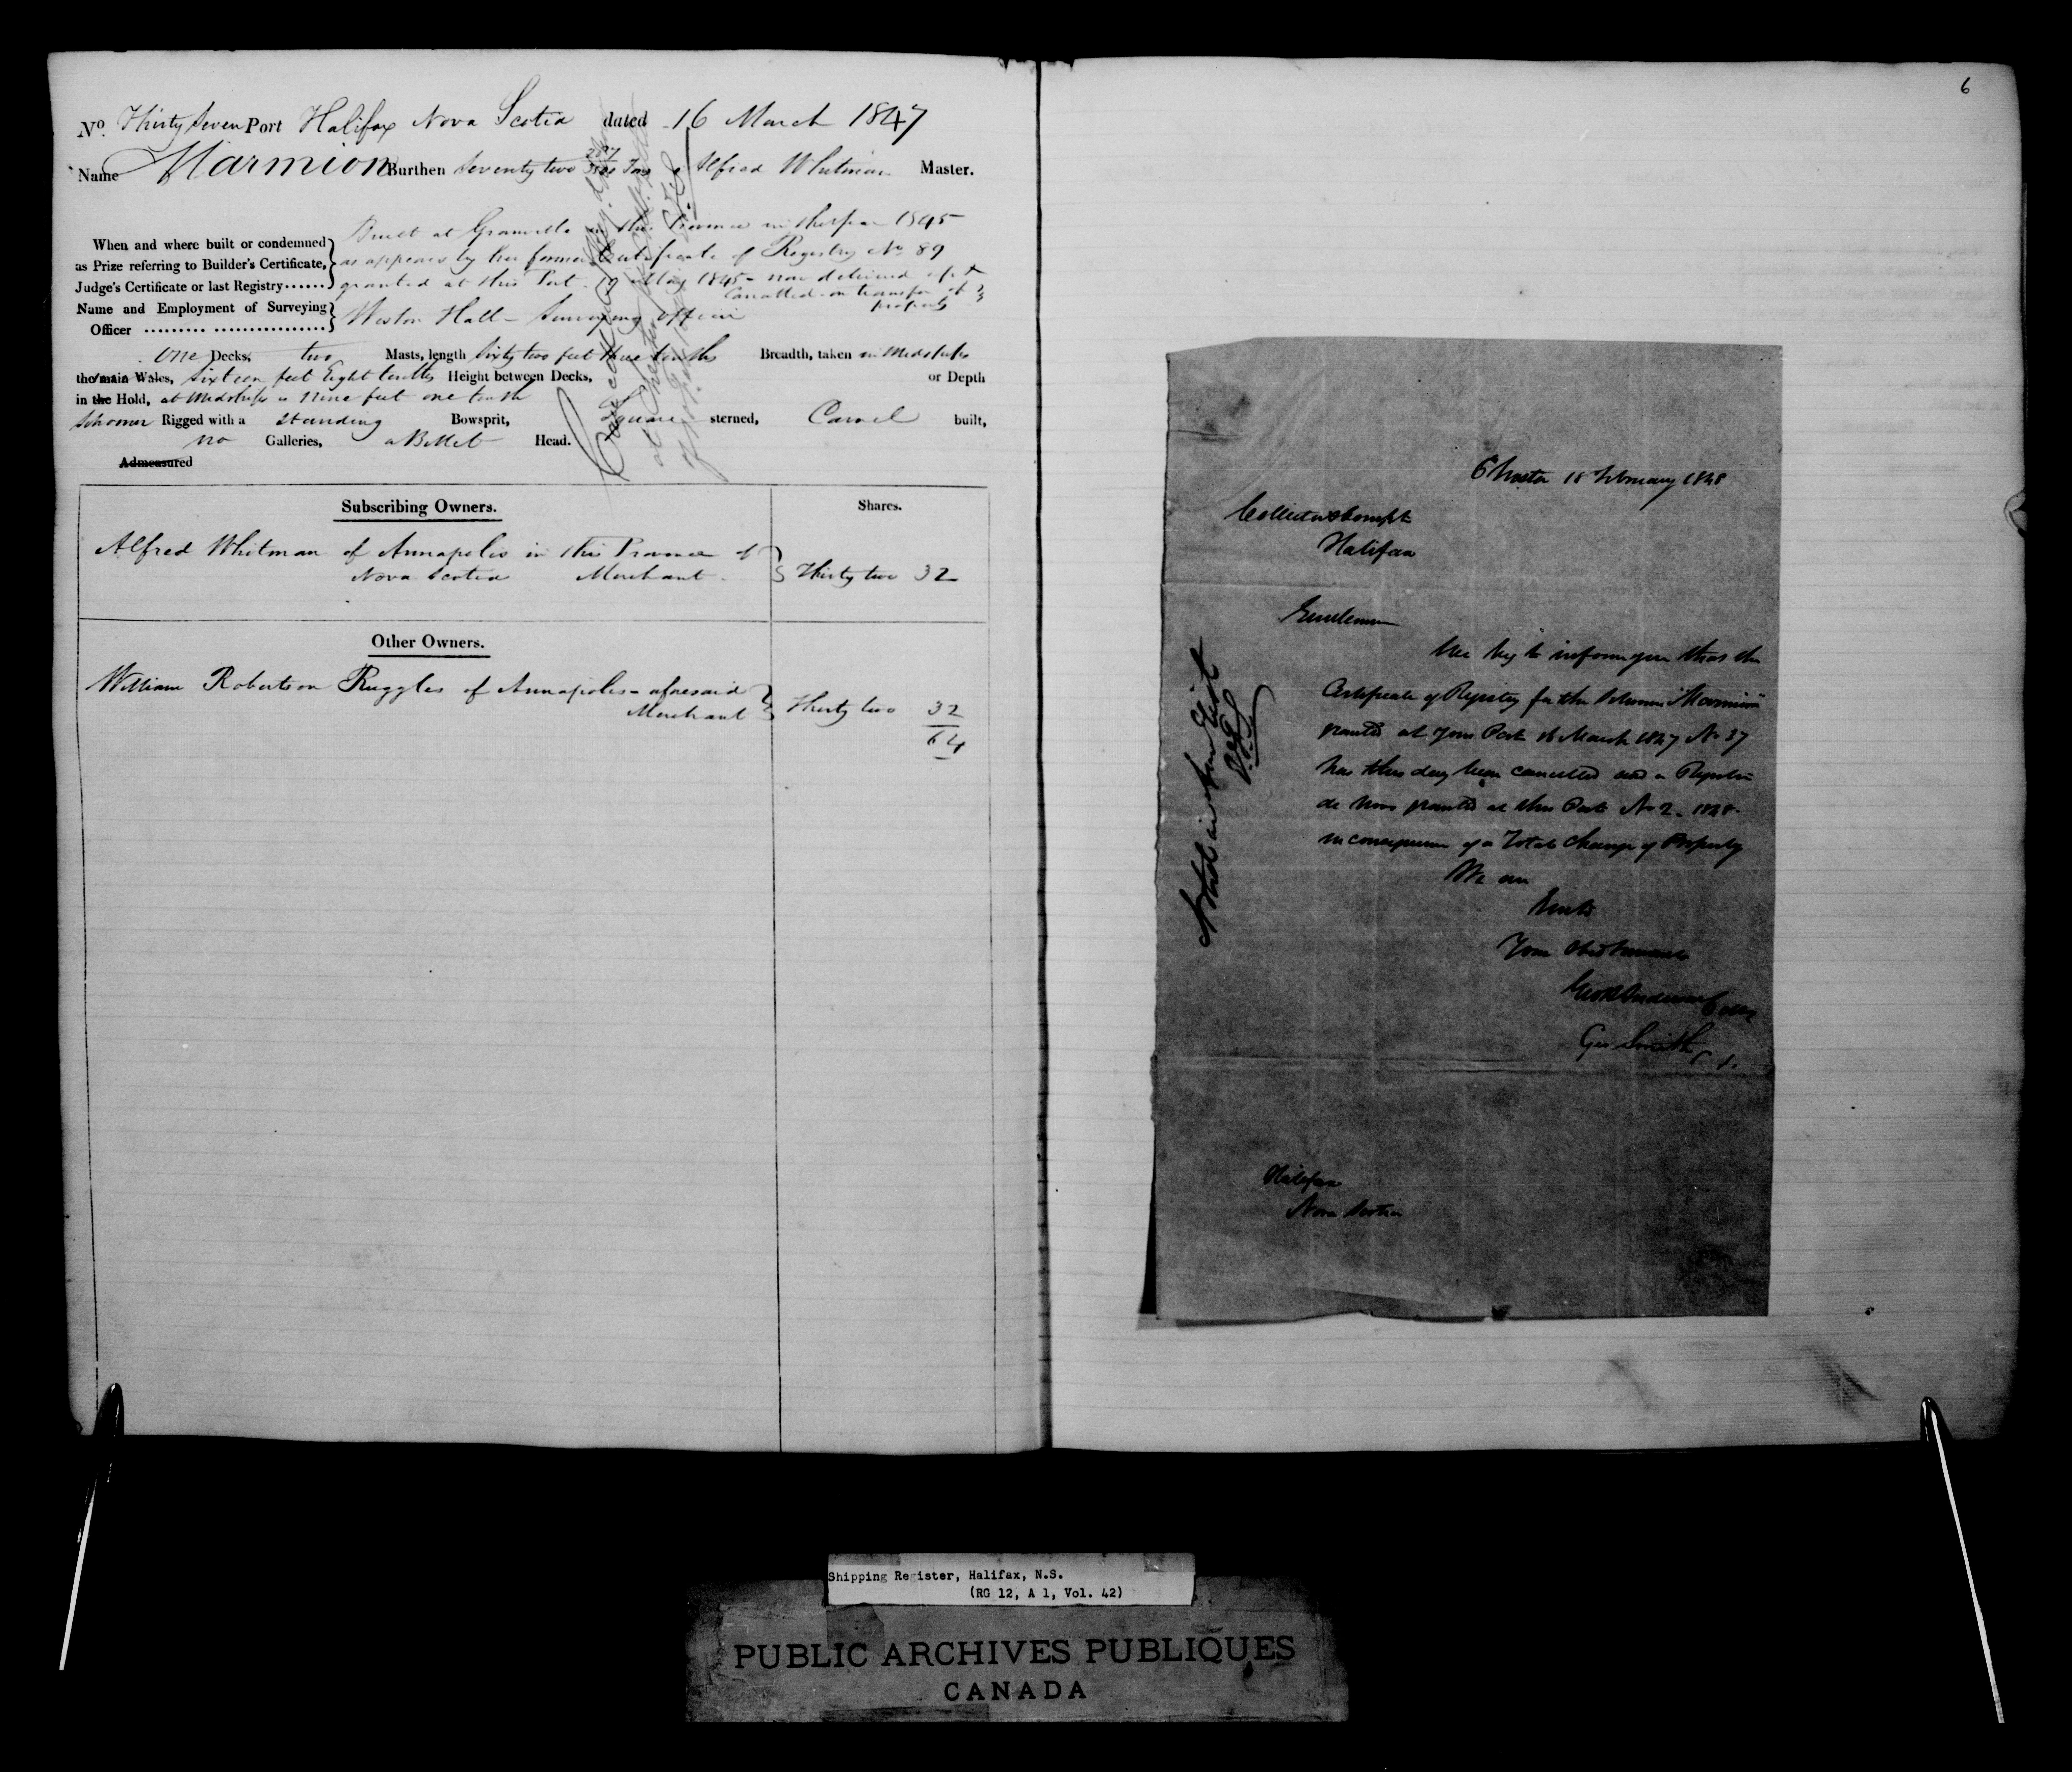 No. Thirty Seven Port Halifax Nova Scotia dated 16 March 1847
Name Marmion Burthen Seventy two Tons Alfred Whitman Master.
When and where built or condemned as Prize referring to Builder's Certificate, Judge's Certificate or last Registry......
Built at Granville in this Province in the year 1845
as appears by her former Certificate of Registry No 89
granted at this Port 19 May 1845 - now delivered up &
Cancelled on transfer of
property
Name and Employment of Surveying Officer
Weston Hall - Surveying Officer
One Decks, two Masts, length Sixty two feet three tenths Breadth, taken in Midships
the main Wales, Sixteen feet Eight tenths Height between Decks, or Depth
in the Hold, at Midships is Nine feet one tenth
Schooner Rigged with a Standing Bowsprit, Square sterned, Carvel built,
no Galleries, a Billet Head.
Admeasured
Subscribing Owners. Shares.
Alfred Whitman of Annapolis in this Province of
Nova Scotia Merchant Thirty two 32
Other Owners.
William Robertson Ruggles of Annapolis aforesaid
Merchant Thirty two 32
64
6
Chester 18 February 1848
Collector & Compt
Halifax
Gentlemen
We beg to inform you that the
Certificate of Registry for the Schooner "Marmion"
granted at Your Port 16 March 1847 No 37
has this day been cancelled and a Register
de novo granted at this Port No 2 - 1848
in consequence of a Total change of Property
We are
Gents
Your Obed Servants
Geo Smith
Halifax
Nova Scotia
Shipping Register, Halifax, N.S.
(RG 12, A 1, Vol. 42)
PUBLIC ARCHIVES PUBLIQUES
CANADA